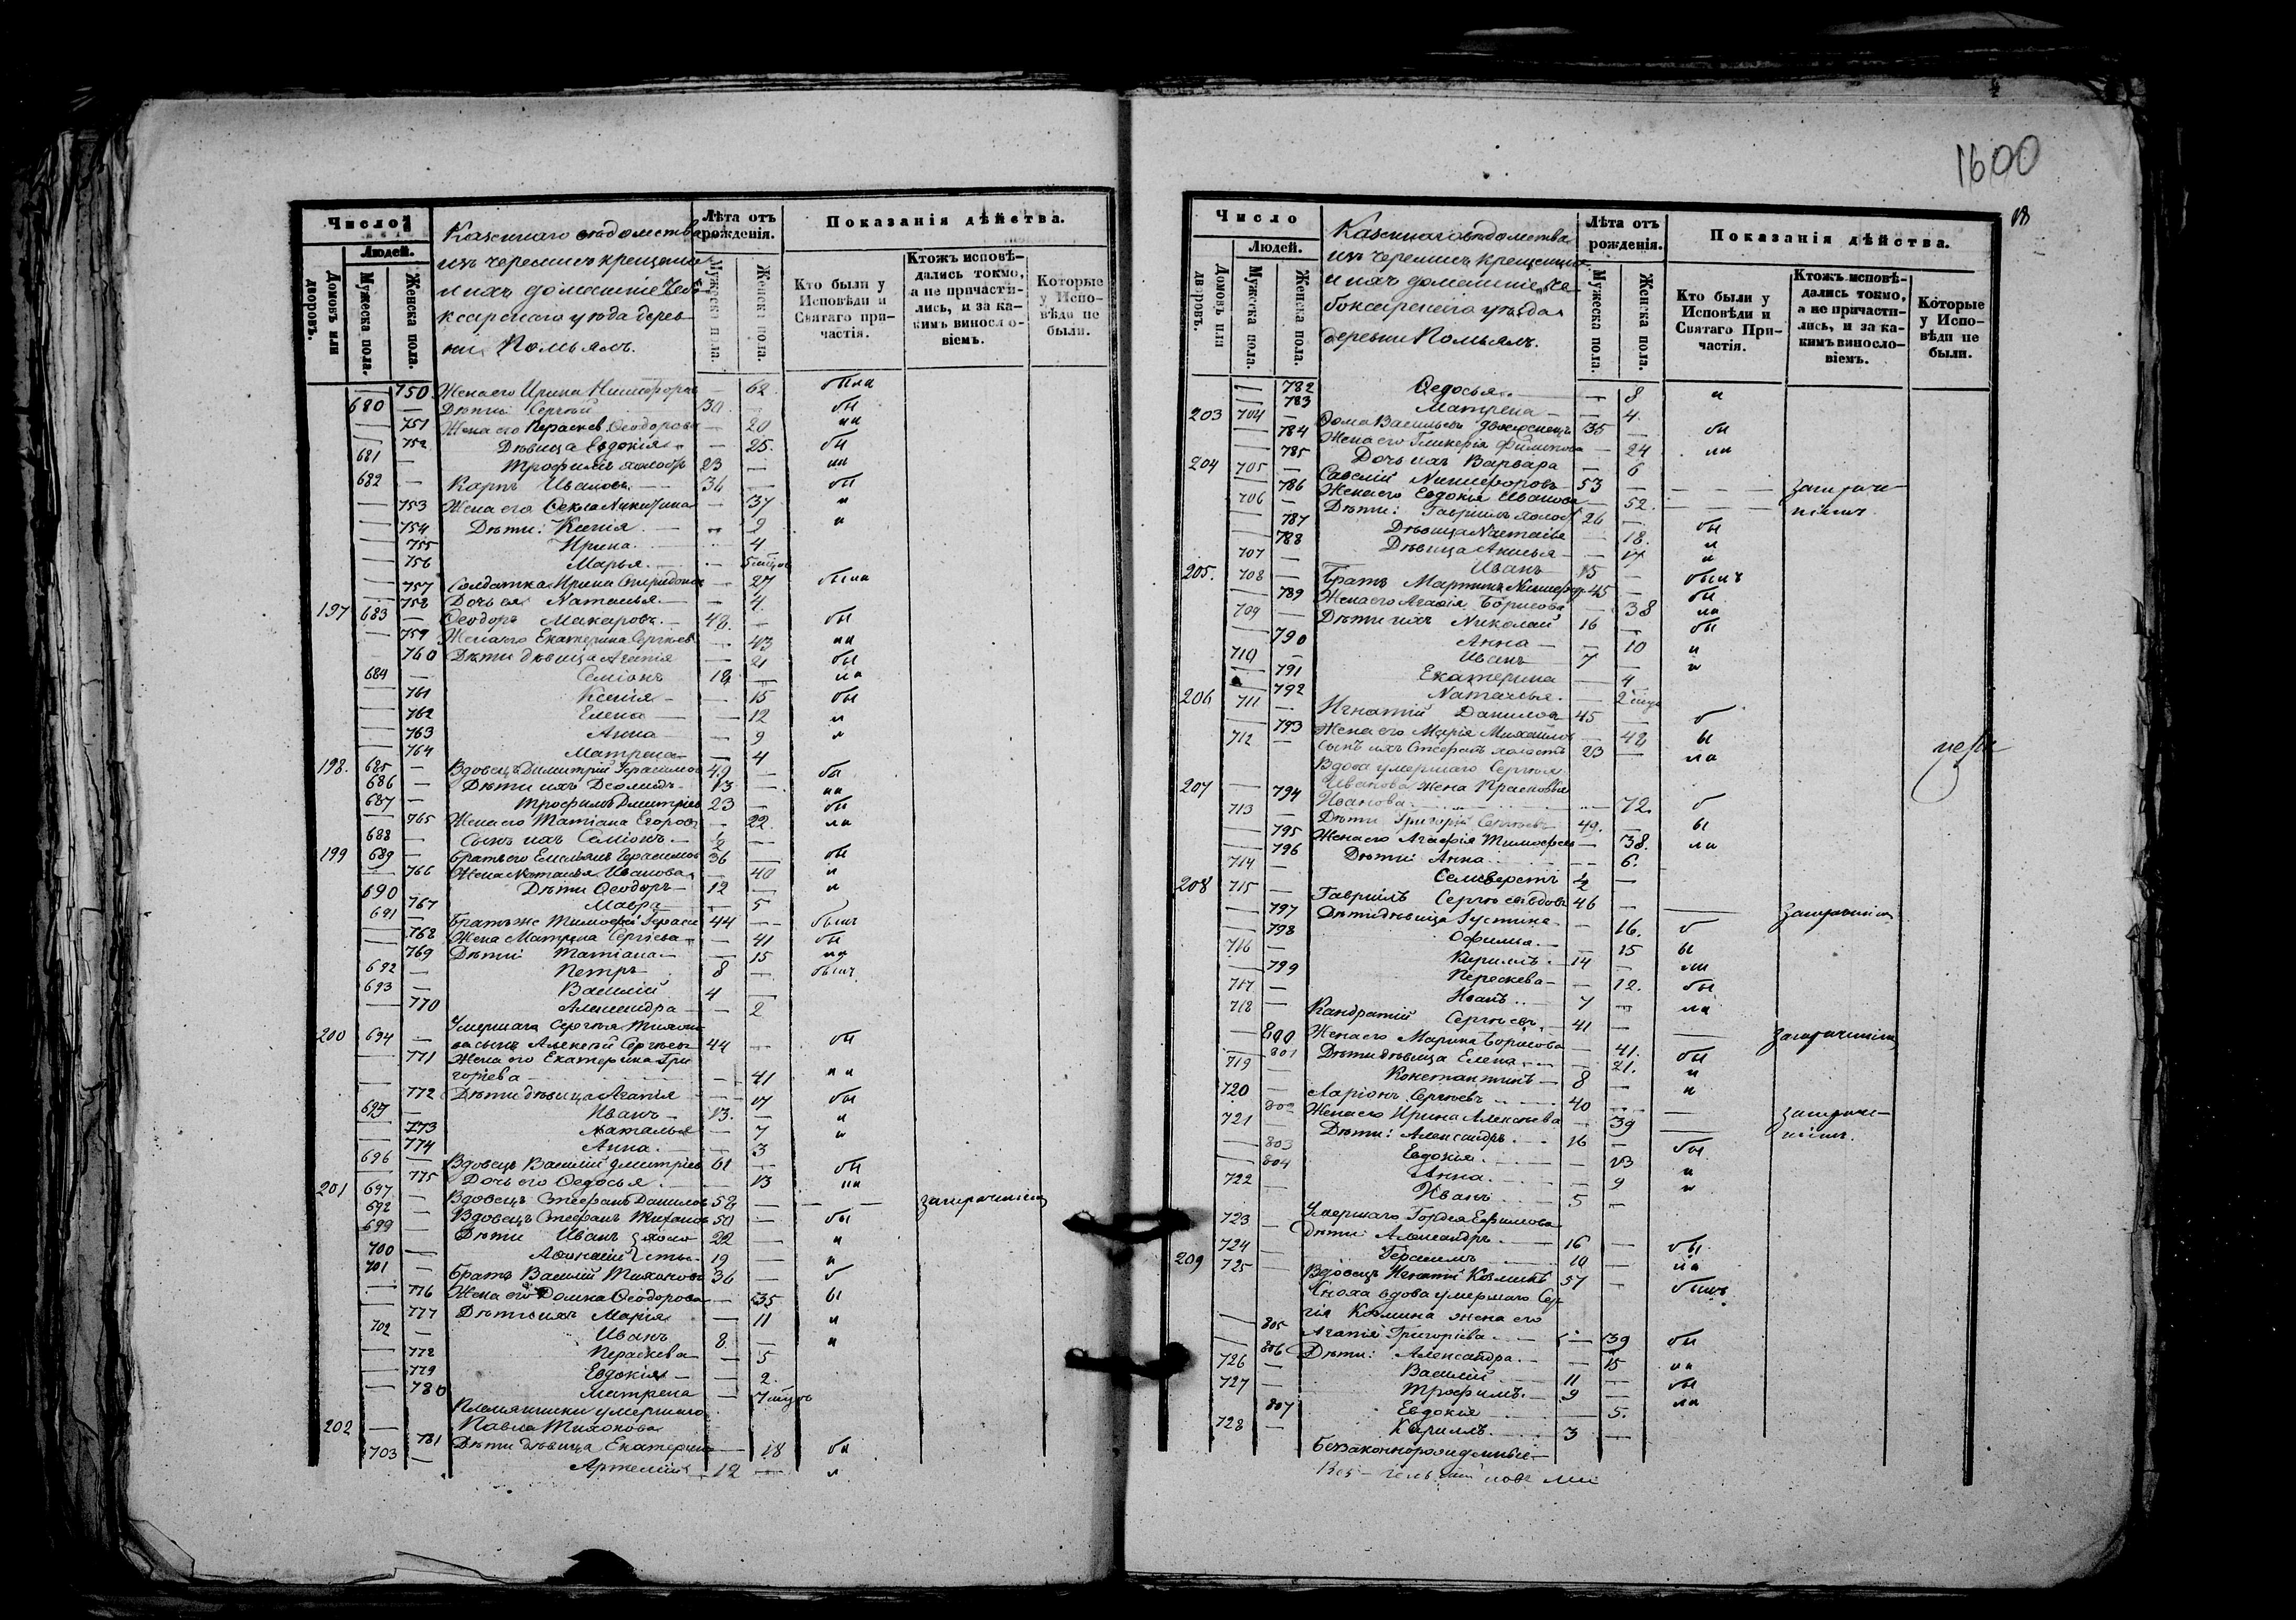 Число
Людей.
Домовъ или дворовъ.
Мужеска пола.
Женска пола.
Казеннаго вѣдомства
изъ черемисъ крещеные
и ихъ домашніе Чебо-
ксарскаго уѣзда дерев-
ни Помьялъ.
Лѣта отъ рожденія.
Мужеска пола.
Женска пола.
Показанія дѣйства.
Кто были у Исповѣди и Святаго при-частія.
Ктожъ исповѣ-дались токмо, а не причасти-лись, и за ка-кимъ винослo-віемъ.
Которые у Испо-вѣди не были.
750 Жена его Ирина Никифорова — 62 была
680 — Дѣти: Сергѣй 30 — бы
751 Жена его Параскев. Ѳеодорова — 20 ли
752 Дѣвица Евдокія — 25. бы
681 — Трофимъ холостъ 23 — ли
682 — Карпъ Ивановъ 36 — бы
753 Жена его Ѳекла Никитина — 37 л
754 Дѣти: Ксенія — 9 и
755 Ирина — 4
756 Марья — 5 мѣцов
757 Солдатка Ирина Спиридонова — 27 была
758 Дочь ея Наталья — 4
197 683 — Ѳеодоръ Макаровъ 48 — бы
759 Жена его Екатерина Сергѣев — 43 ли
760 Дѣти дѣвица Агапія — 21 бы
684 — Семіонъ 18 — ли
761 Ксенія — 15 бы
762 Елена — 12 л
763 Анна — 9 и
764 Матрена — 4
198. 685 — Вдовецъ Димитрій Герасимов 49 — бы
686 — Дѣти ихъ Деомидъ 13 — ли
687 — Трофимъ Дмитріев 23 — бы
765 Жена его Татіана Егорова — 22 ли
688 — Сынъ ихъ Семіонъ ½ —
199 689 — Братъ его Емельянъ Герасимов 36 — бы
766 Жена Наталья Иванова — 40 л
690 — Дѣти Ѳеодоръ 12 — и
767 Мавра — 5
691 — Братъ же Тимофей Гераси 44 — былъ
768 Жена Матрена Сергіева — 41 бы
769 Дѣти: Татіана — 15 ла
692 — Петръ 8 — былъ
693 — Василій 4 —
770 Александра — 2
Умершаго Сергѣя Тихоно
200 694 — ва сынъ Алексѣй Сергѣевъ 44 — бы
771 Жена его Екатерина Гри
горіева — 41 ли
772 Дѣти дѣвица Агапія — 17 бы
695 — Иванъ 13. — л
773 Наталья — 7 и
774 Анна — 3
696 — Вдовецъ Василій Дмитріев 61 — бы
775 Дочь его Ѳедосья — 13 ли
201 697 — Вдовецъ Стефанъ Даниловъ 58 — за отлученіемъ
698 — Вдовецъ Стефанъ Тихонов 50 — бы
699 — Дѣти Иванъ холо 22 — л
700 — Аѳанасій сты 19 — и
701 — Братъ Василій Тихоновъ 36 — б
776 Жена его Домна Ѳеодорова — 35 ы
777 Дѣти ихъ Марія — 11 л
702 — Иванъ 8 — и
778 Параскева — 5
779 Евдокія — 2.
780 Матрена — 7 мѣцов
Племянники умершаго
202 — Павла Тихонова
781 Дѣти дѣвица Екатерина — 18 бы
703 — Артемій 12 — л
1600
Число
Людей.
Домовъ или дворовъ.
Мужеска пола.
Женска пола.
Казеннаго вѣдомства
изъ черемисъ крещеные
и ихъ домашніе, Че-
боксарскаго уѣзда
деревни Помьялъ.
Лѣта отъ рожденія.
Мужеска пола.
Женска пола.
Показанія дѣйства.
Кто были у Исповѣди и Святаго При-частія.
Ктожъ исповѣ-дались токмо, а не причасти-лись, и за ка-кимъ винослo-віемъ.
Которые у Испо-вѣди не были.
782 Ѳедосья — 8 и
783 Матрена — 4.
203 704 — Ѳома Васильевъ двоеженецъ 35 — бы
784 Жена его Гликерія Филипова — 24 ли
785 Дочь ихъ Варвара — 6
204 705 — Савелій Никифоровъ 53 —
786 Жена его Евдокія Иванова — 52.
706 — Дѣти: Гавріилъ холост 26 — бы
787 Дѣвица Настасья — 18. л
788 Дѣвица Акилья — 17 и
707 — Иванъ 15 — былъ
205. 708 — Братъ Мартинъ Никифор. 45 — бы
789 Жена его Агафія Борисова — 38 ли
709 — Дѣти ихъ Николай 16 — бы
790 Анна — 10 л
710 — Иванъ 7 — и
791 Екатерина — 4
792 Наталья. — 2 мѣця
206 711 — Игнатій Данилов 45 — б
793 Жена его Марія Михайлов — 42 ы
712 — Сынъ ихъ Стефанъ холостъ 23 — ли
Вдова умершаго Сергѣя
Иванова жена Прасковья
207 794 Иванова — 72. б
713 — Дѣти Григорій Сергѣевъ 49. — ы
795 Жена его Агафія Тимофеев — 38. ли
796 Дѣти: Анна — 6.
714 — Селиверстъ ½ —
208 715 — Гавріилъ Сергѣев вдовъ 46 —
797 Дѣти дѣвица Іустина — 16. б
798 Офимья — 15 ы
716 — Кирилъ 14 — ли
799 Параскева — 12. бы
717 — Иванъ 7 — ли
718 — Кандратій Сергѣевъ 41 —
800 Жена его Марина Борисова — 41.
801 Дѣти дѣвица Елена — 21. бы
719 — Константинъ 8 — и
720 — Ларіонъ Сергѣевъ 40
802 Жена его Ирина Алексѣева — 39
721 — Дѣти: Александръ 16 — бы
803 Евдокія — 13 л
804 Анна — 9 и
722 — Иванъ 5 —
Умершаго Гордея Ефимова
723 — Дѣти: Александръ 16 — бы
724 — Герасимъ 10 — ли
209 725 — Вдовецъ Игнатій Козминъ 57 — былъ
Сноха вдова умершаго Сер-
гія Козмина жена его
805 Агапія Григоріева — 39 бы
806 Дѣти: Александра — 15 ли
726 — Василій 11 — бы
727 — Трофимъ 9 — ли
807 Евдокія — 5.
728 — Кирилъ 3 —
Беззаконнорожденные